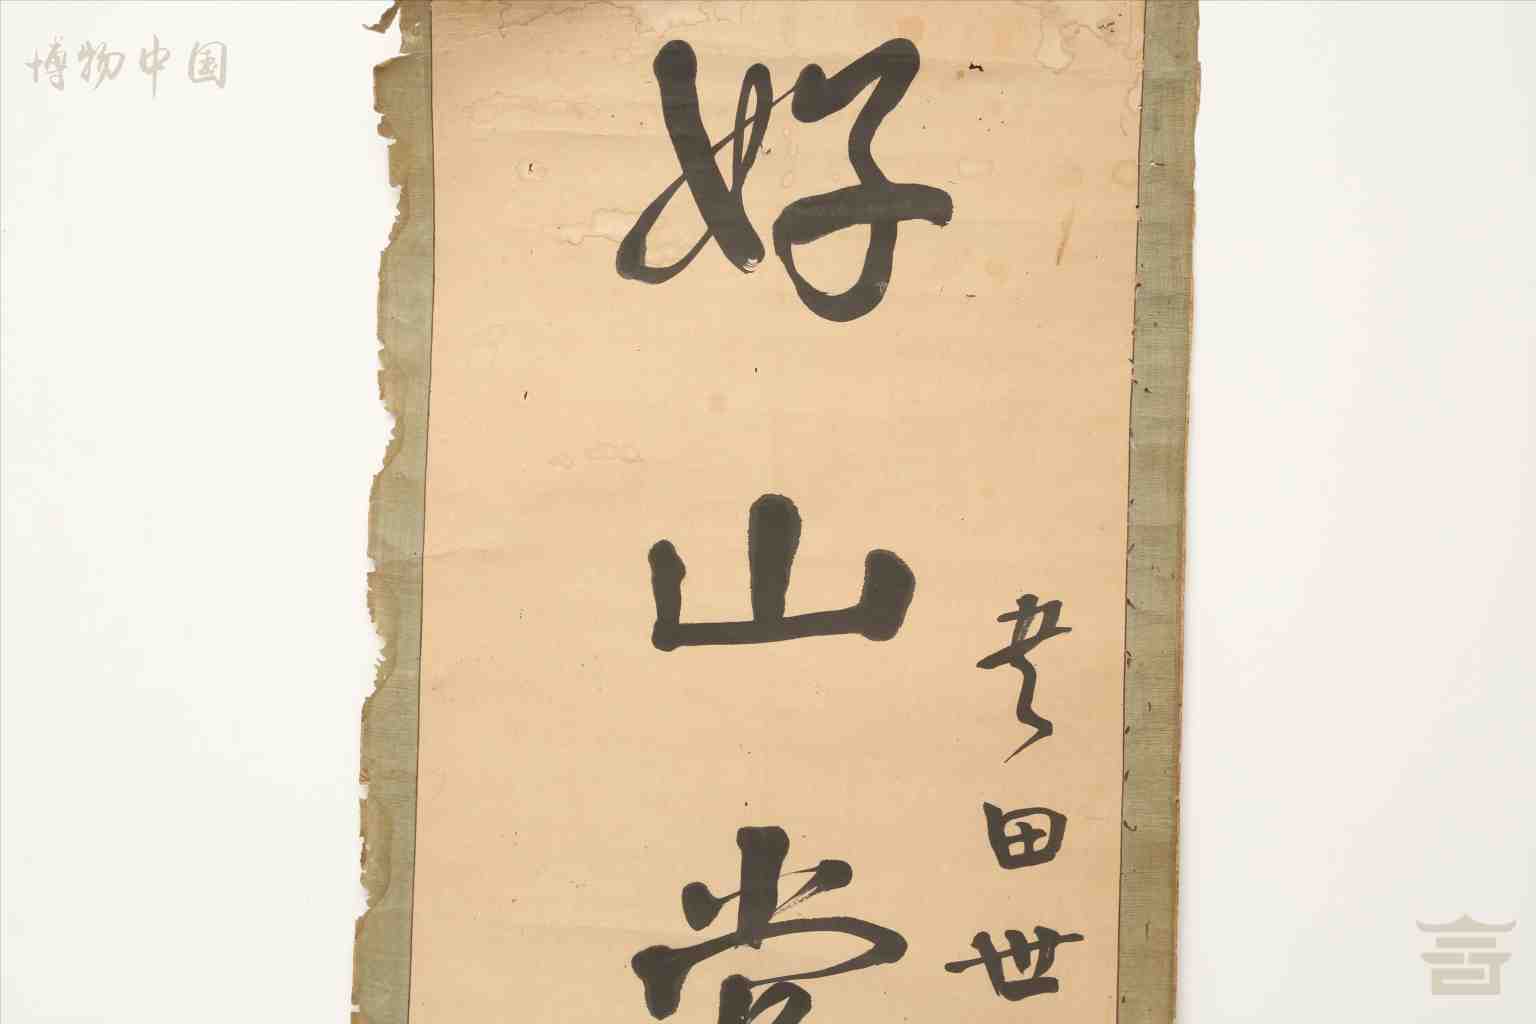 博物中国
好山
田世